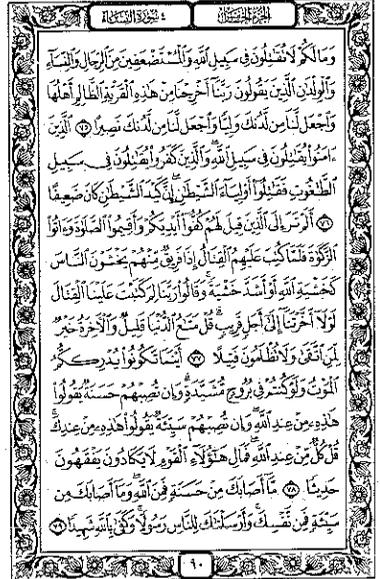 الجزء الخامس
٤ سورة النساء
وَمَا لَكُمْ لَا تُقَٰتِلُونَ فِى سَبِيلِ ٱللَّهِ وَٱلْمُسْتَضْعَفِينَ مِنَ ٱلرِّجَالِ وَٱلنِّسَآءِ
وَٱلْوِلْدَٰنِ ٱلَّذِينَ يَقُولُونَ رَبَّنَآ أَخْرِجْنَا مِنْ هَٰذِهِ ٱلْقَرْيَةِ ٱلظَّالِمِ أَهْلُهَا
وَٱجْعَل لَّنَا مِن لَّدُنكَ وَلِيًّا وَٱجْعَل لَّنَا مِن لَّدُنكَ نَصِيرًا ٧٥ ٱلَّذِينَ
ءَامَنُوا۟ يُقَٰتِلُونَ فِى سَبِيلِ ٱللَّهِ ۖ وَٱلَّذِينَ كَفَرُوا۟ يُقَٰتِلُونَ فِى سَبِيلِ
ٱلطَّٰغُوتِ فَقَٰتِلُوٓا۟ أَوْلِيَآءَ ٱلشَّيْطَٰنِ ۖ إِنَّ كَيْدَ ٱلشَّيْطَٰنِ كَانَ ضَعِيفًا
٧٦ أَلَمْ تَرَ إِلَى ٱلَّذِينَ قِيلَ لَهُمْ كُفُّوٓا۟ أَيْدِيَكُمْ وَأَقِيمُوا۟ ٱلصَّلَوٰةَ وَءَاتُوا۟
ٱلزَّكَوٰةَ فَلَمَّا كُتِبَ عَلَيْهِمُ ٱلْقِتَالُ إِذَا فَرِيقٌ مِّنْهُمْ يَخْشَوْنَ ٱلنَّاسَ
كَخَشْيَةِ ٱللَّهِ أَوْ أَشَدَّ خَشْيَةً ۚ وَقَالُوا۟ رَبَّنَا لِمَ كَتَبْتَ عَلَيْنَا ٱلْقِتَالَ
لَوْلَآ أَخَّرْتَنَآ إِلَىٰٓ أَجَلٍ قَرِيبٍ ۗ قُلْ مَتَٰعُ ٱلدُّنْيَا قَلِيلٌ وَٱلْءَاخِرَةُ خَيْرٌ
لِّمَنِ ٱتَّقَىٰ وَلَا تُظْلَمُونَ فَتِيلًا ٧٧ أَيْنَمَا تَكُونُوا۟ يُدْرِككُّمُ
ٱلْمَوْتُ وَلَوْ كُنتُمْ فِى بُرُوجٍ مُّشَيَّدَةٍ ۗ وَإِن تُصِبْهُمْ حَسَنَةٌ يَقُولُوا۟
هَٰذِهِۦ مِنْ عِندِ ٱللَّهِ ۖ وَإِن تُصِبْهُمْ سَيِّئَةٌ يَقُولُوا۟ هَٰذِهِۦ مِنْ عِندِكَ ۚ
قُلْ كُلٌّ مِّنْ عِندِ ٱللَّهِ ۖ فَمَالِ هَٰٓؤُلَآءِ ٱلْقَوْمِ لَا يَكَادُونَ يَفْقَهُونَ
حَدِيثًا ٧٨ مَّآ أَصَابَكَ مِنْ حَسَنَةٍ فَمِنَ ٱللَّهِ ۖ وَمَآ أَصَابَكَ مِن
سَيِّئَةٍ فَمِن نَّفْسِكَ ۚ وَأَرْسَلْنَٰكَ لِلنَّاسِ رَسُولًا ۚ وَكَفَىٰ بِٱللَّهِ شَهِيدًا ٧٩
٩٠